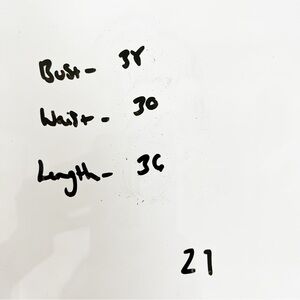 Bust - 38
Waist - 30
Length - 36
21